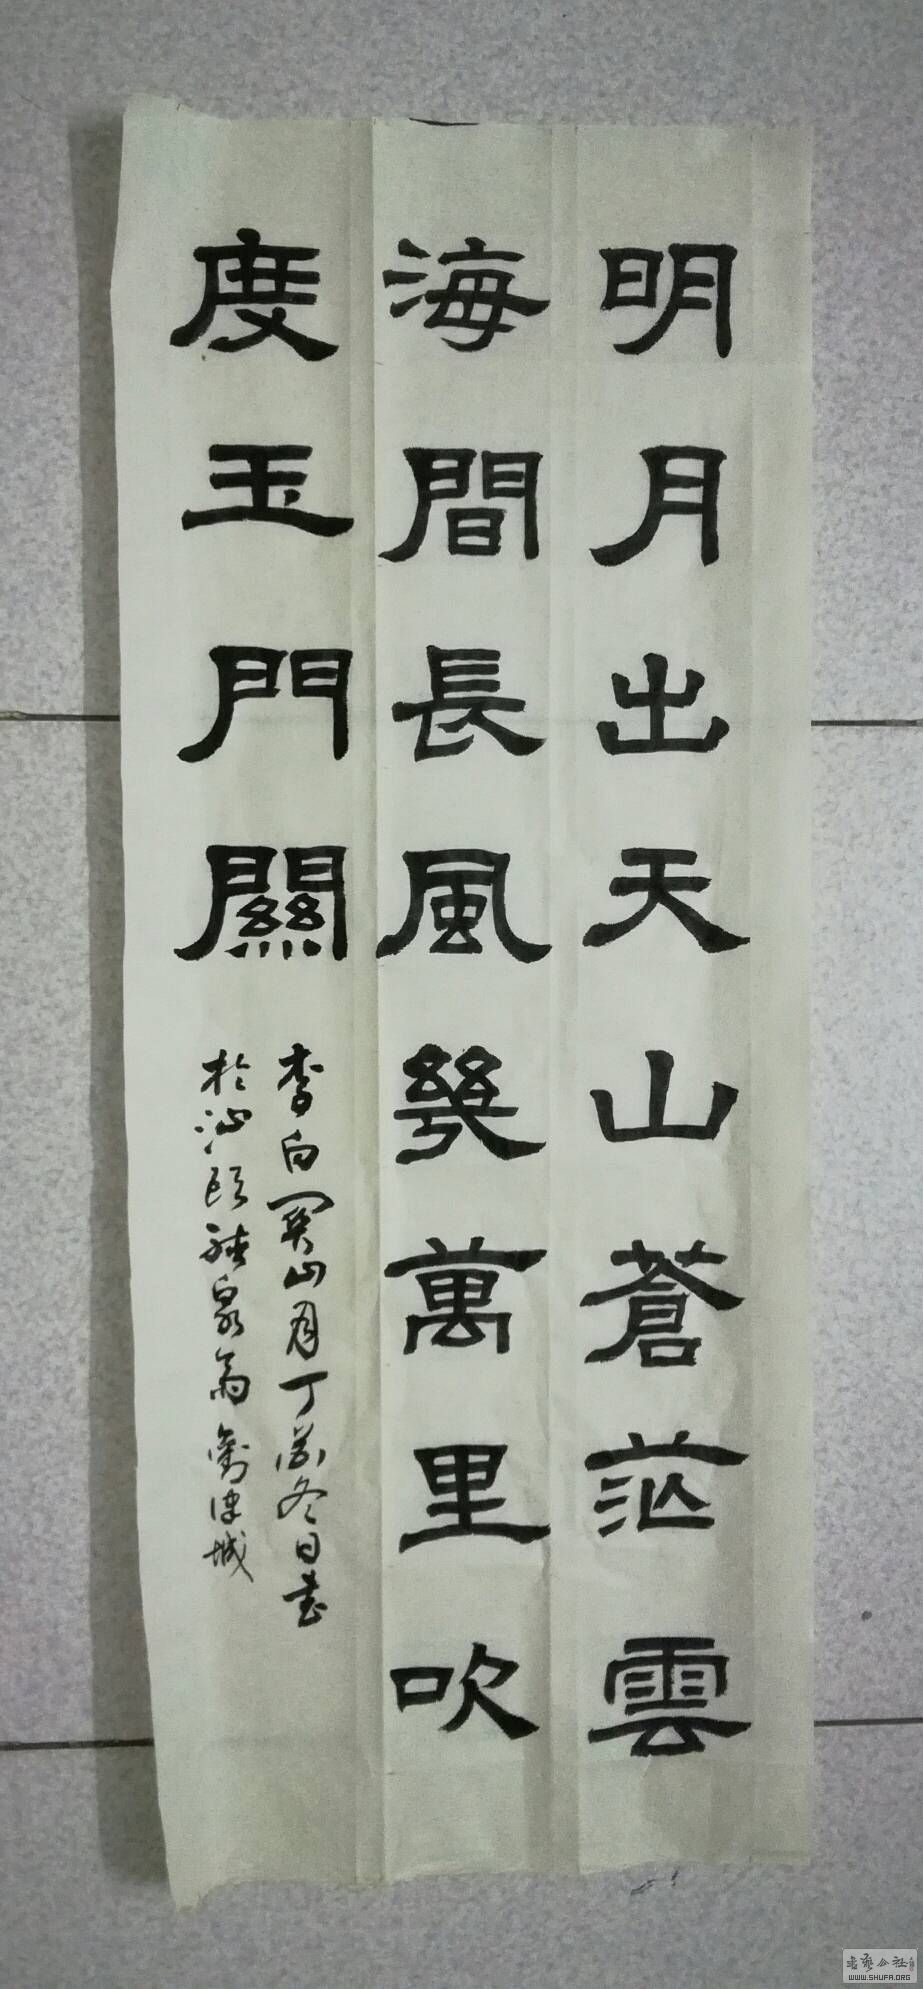 明月出天山蒼茫雲
海間長風幾萬里吹
度玉門關
李白關山月丁酉冬日書
於沁
書法公社
WWW.SHUFA.ORG